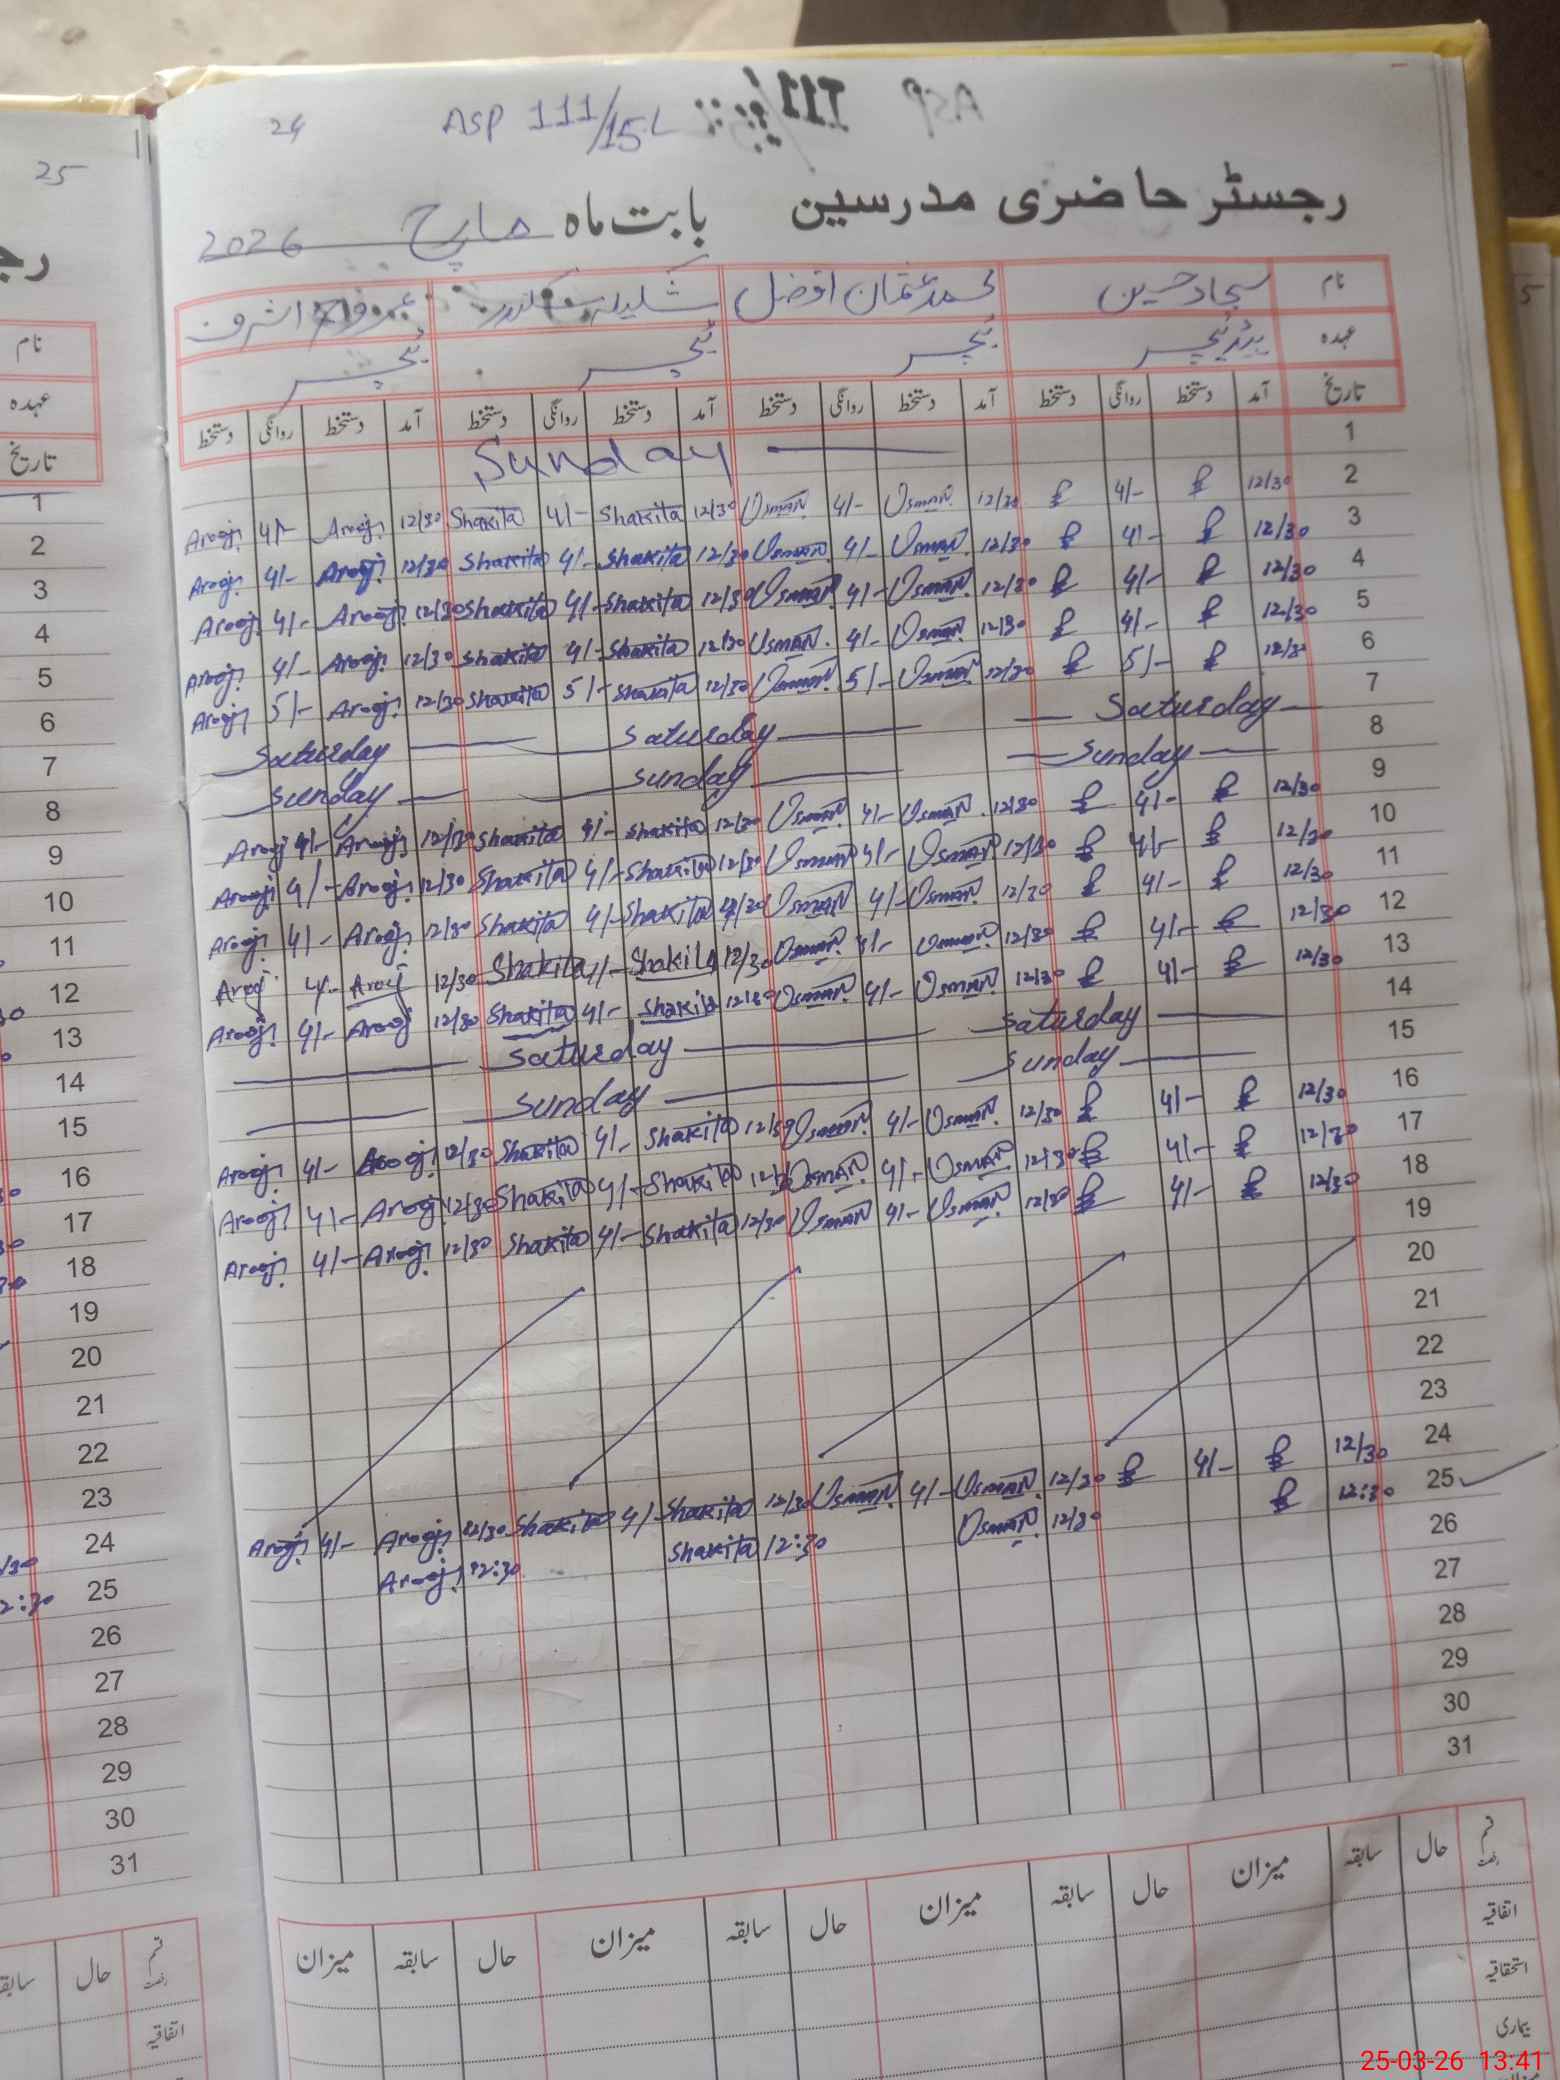 24 ASP 111/15.L
25
رجسٹر حاضری مدرسین بابت ماہ مارچ 2026
نام سجاد حسین محمد عثمان افضل شکیلہ اشرف
عہدہ ہیڈ ٹیچر ٹیچر ٹیچر ٹیچر
تاریخ آمد دستخط روانگی دستخط آمد دستخط روانگی دستخط آمد دستخط روانگی دستخط آمد دستخط روانگی دستخط
1 Sunday
2 Arooj 4/- Arooj 12/30 Shakila 4/- Shakila 12/30 Usman 4/- Usman 12/30 4/- 12/30
3 Arooj 4/- Arooj 12/30 Shakila 4/- Shakila 12/30 Usman 4/- Usman 12/30 4/- 12/30
4 Arooj 4/- Arooj 12/30 Shakila 4/- Shakila 12/30 Usman 4/- Usman 12/30 4/- 12/30
5 Arooj 4/- Arooj 12/30 Shakila 4/- Shakila 12/30 Usman 4/- Usman 12/30 4/- 12/30
6 Arooj 5/- Arooj 12/30 Shakila 5/- Shakila 12/30 Usman 5/- Usman 12/30 5/- 12/30
7 Saturday Saturday Saturday
8 Sunday Sunday Sunday
9 Arooj 4/- Arooj 12/30 Shakila 4/- Shakila 12/30 Usman 4/- Usman 12/30 4/- 12/30
10 Arooj 4/- Arooj 12/30 Shakila 4/- Shakila 12/30 Usman 4/- Usman 12/30 4/- 12/30
11 Arooj 4/- Arooj 12/30 Shakila 4/- Shakila Usman 4/- Usman 12/30 4/- 12/30
12 Arooj 4/- Arooj 12/30 Shakila 4/- Shakila 12/30 Usman 4/- Usman 12/30 4/- 12/30
13 Arooj 4/- Arooj 12/30 Shakila 4/- Shakila 12/30 Usman 4/- Usman 12/30 4/- 12/30
14 Saturday Saturday
15 Sunday Sunday
16 Arooj 4/- Arooj 12/30 Shakila 4/- Shakila 12/30 Usman 4/- Usman 12/30 4/- 12/30
17 Arooj 4/- Arooj 12/30 Shakila 4/- Shakila Usman 4/- Usman 12/30 4/- 12/30
18 Arooj 4/- Arooj 12/30 Shakila 4/- Shakila 12/30 Usman 4/- Usman 12/30 4/- 12/30
19
20
21
22
23
24 Arooj 4/- Arooj 12/30 Shakila 4/- Shakila 12/30 Usman 4/- Usman 12/30 4/- 12/30
25 Arooj 12:30 Shakila 12:30 Usman 12/30 12:30
26
27
28
29
30
31
قسم رخصت حال سابقہ میزان حال سابقہ میزان حال سابقہ میزان حال سابقہ میزان
اتفاقیہ
استحقاقیہ
بیماری
نام
عہدہ
تاریخ
1
2
3
4
5
6
7
8
9
10
11
12
13
14
15
16
17
18
19
20
21
22
23
24
25 2:30
26
27
28
29
30
31
قسم رخصت حال سابقہ
اتفاقیہ
25-03-26 13:41